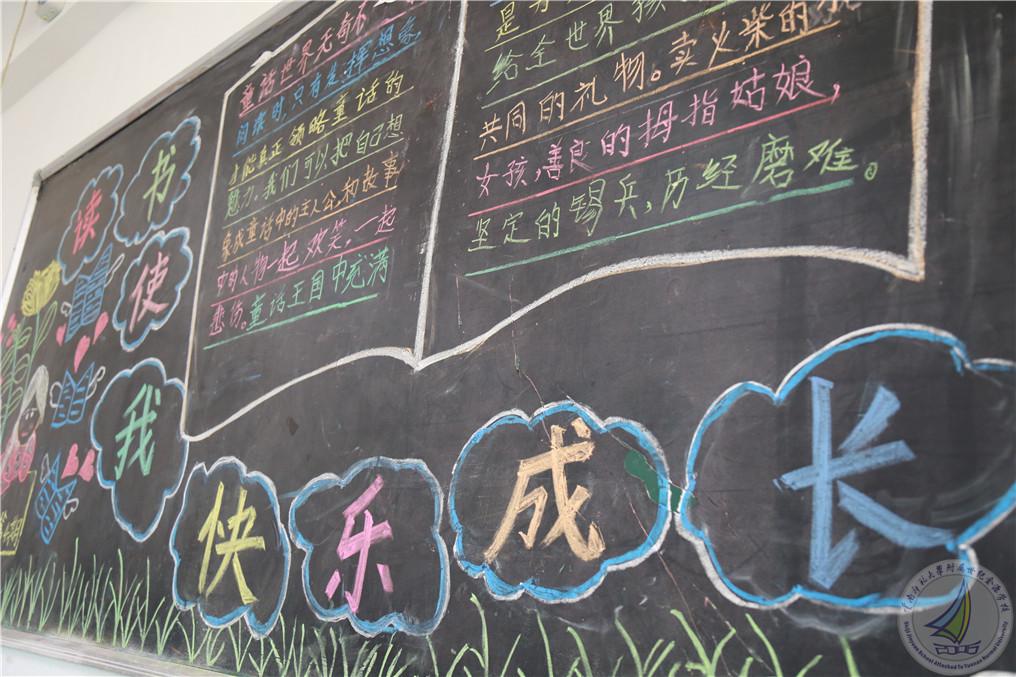 读
书
使
我
快
乐
成
长
童话世界无奇不
阅读时,只有发挥想象,
才能真正领略童话的
魅力。我们可以把自己想
象成童话中的主人公,和故事
中的人物一起欢笑,一起
悲伤。童话王国中充满
是
给全世界孩
共同的礼物。卖火柴的
女孩,善良的拇指姑娘,
坚定的锡兵,历经磨难。
School Attached To Yunnan Normal University